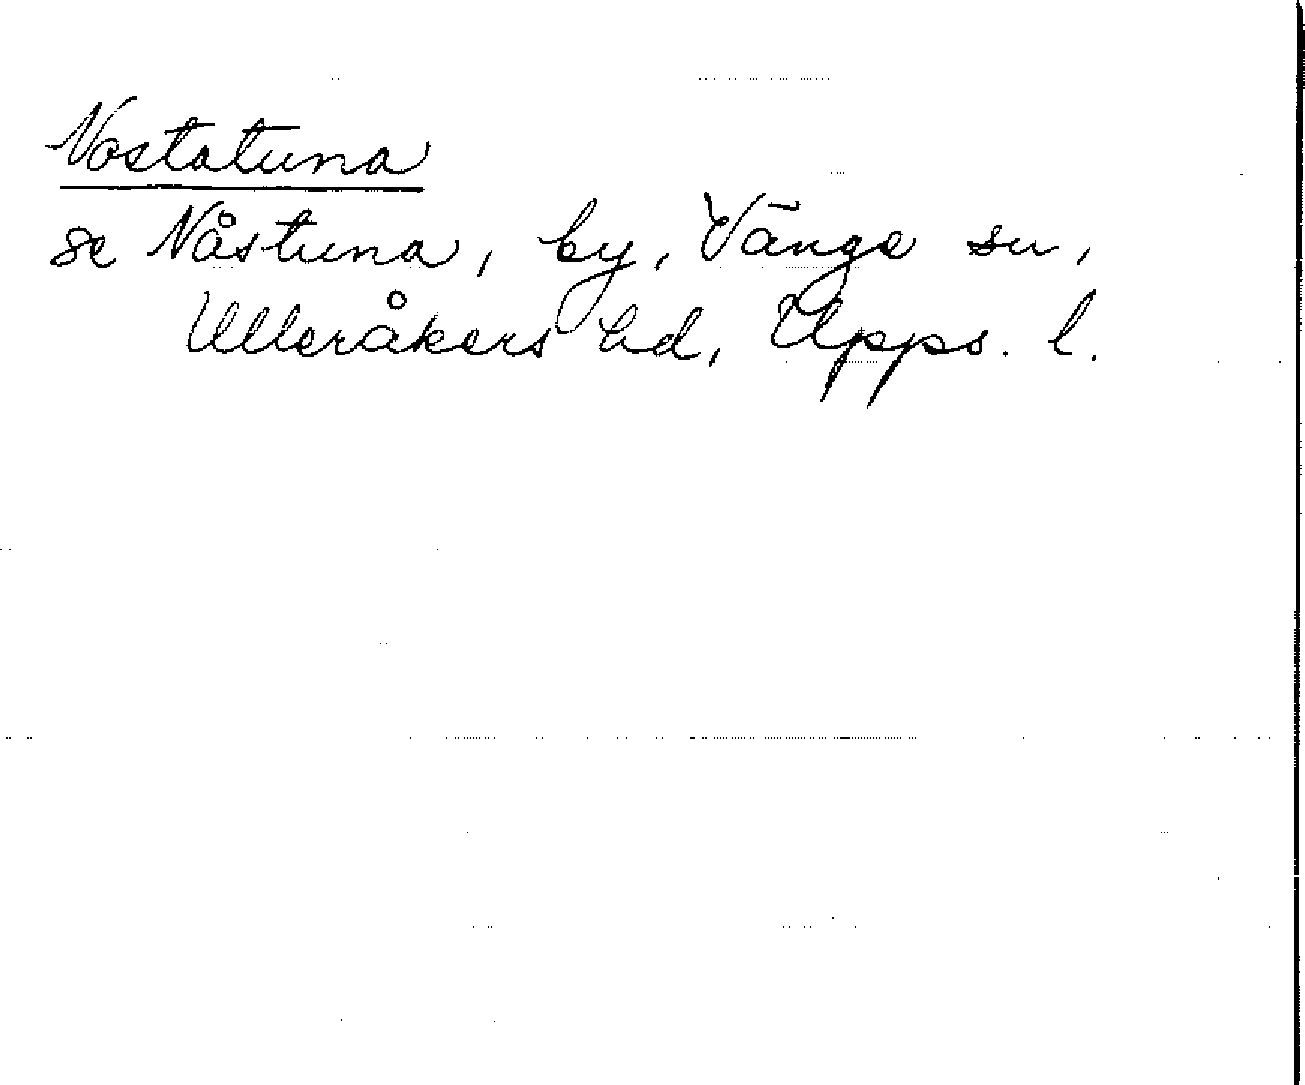 Nostatuna
se Nåstuna, by, Vänge sn,
Ulleråkers hd, Upps. l.